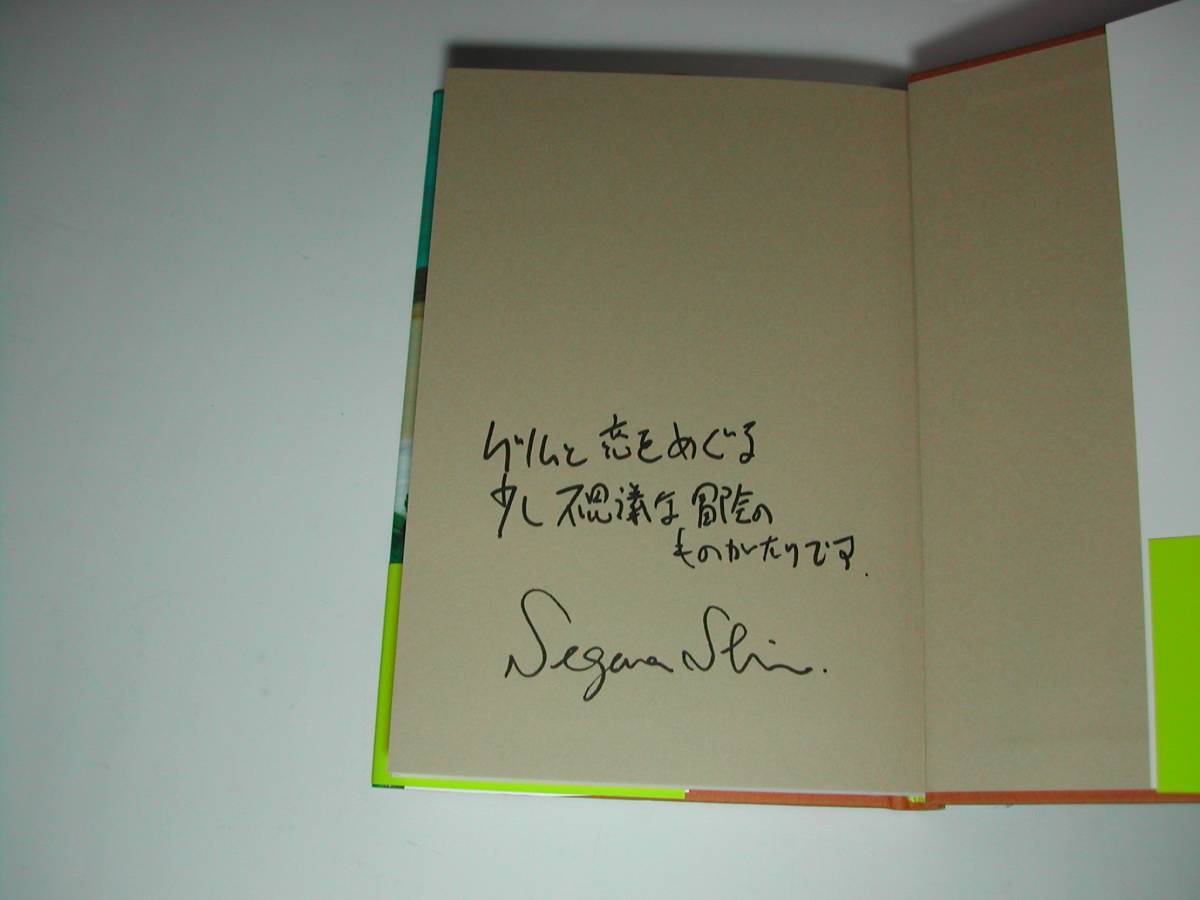 グリムと恋をめぐる
少し不思議な冒険の
ものがたりです.
Segawa Shin.